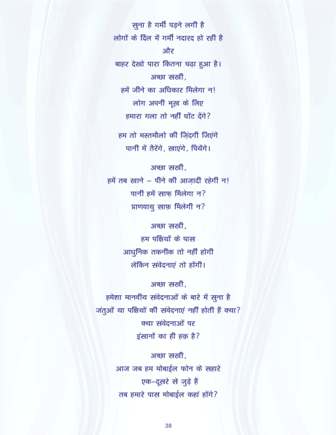 सुना है गर्मी पड़ने लगी है
लोगों के दिल में गर्मी नदारद हो रही है
और
बाहर देखो पारा कितना चढ़ा हुआ है।
अच्छा सखी,
हमें जीने का अधिकार मिलेगा न!
लोग अपनी भूख के लिए
हमारा गला तो नहीं घोंट देंगे?
हम तो मस्तमौलों की जिंदगी जिएंगे
पानी में तैरेंगे, खाएंगे, पियेंगे।
अच्छा सखी,
हमें तब खाने - पीने की आजादी रहेगी न!
पानी हमें साफ मिलेगा न?
प्राणवायु साफ मिलेगी न?
अच्छा सखी,
हम पक्षियों के पास
आधुनिक तकनीक तो नहीं होगी
लेकिन संवेदनाएं तो होंगी।
अच्छा सखी,
हमेशा मानवीय संवेदनाओं के बारे में सुना है
जंतुओं या पक्षियों की संवेदनाएं नहीं होती हैं क्या?
क्या संवेदनाओं पर
इंसानों का ही हक है?
अच्छा सखी,
आज जब हम मोबाईल फोन के सहारे
एक-दूसरे से जुड़े हैं
तब हमारे पास मोबाईल कहां होंगे?
38